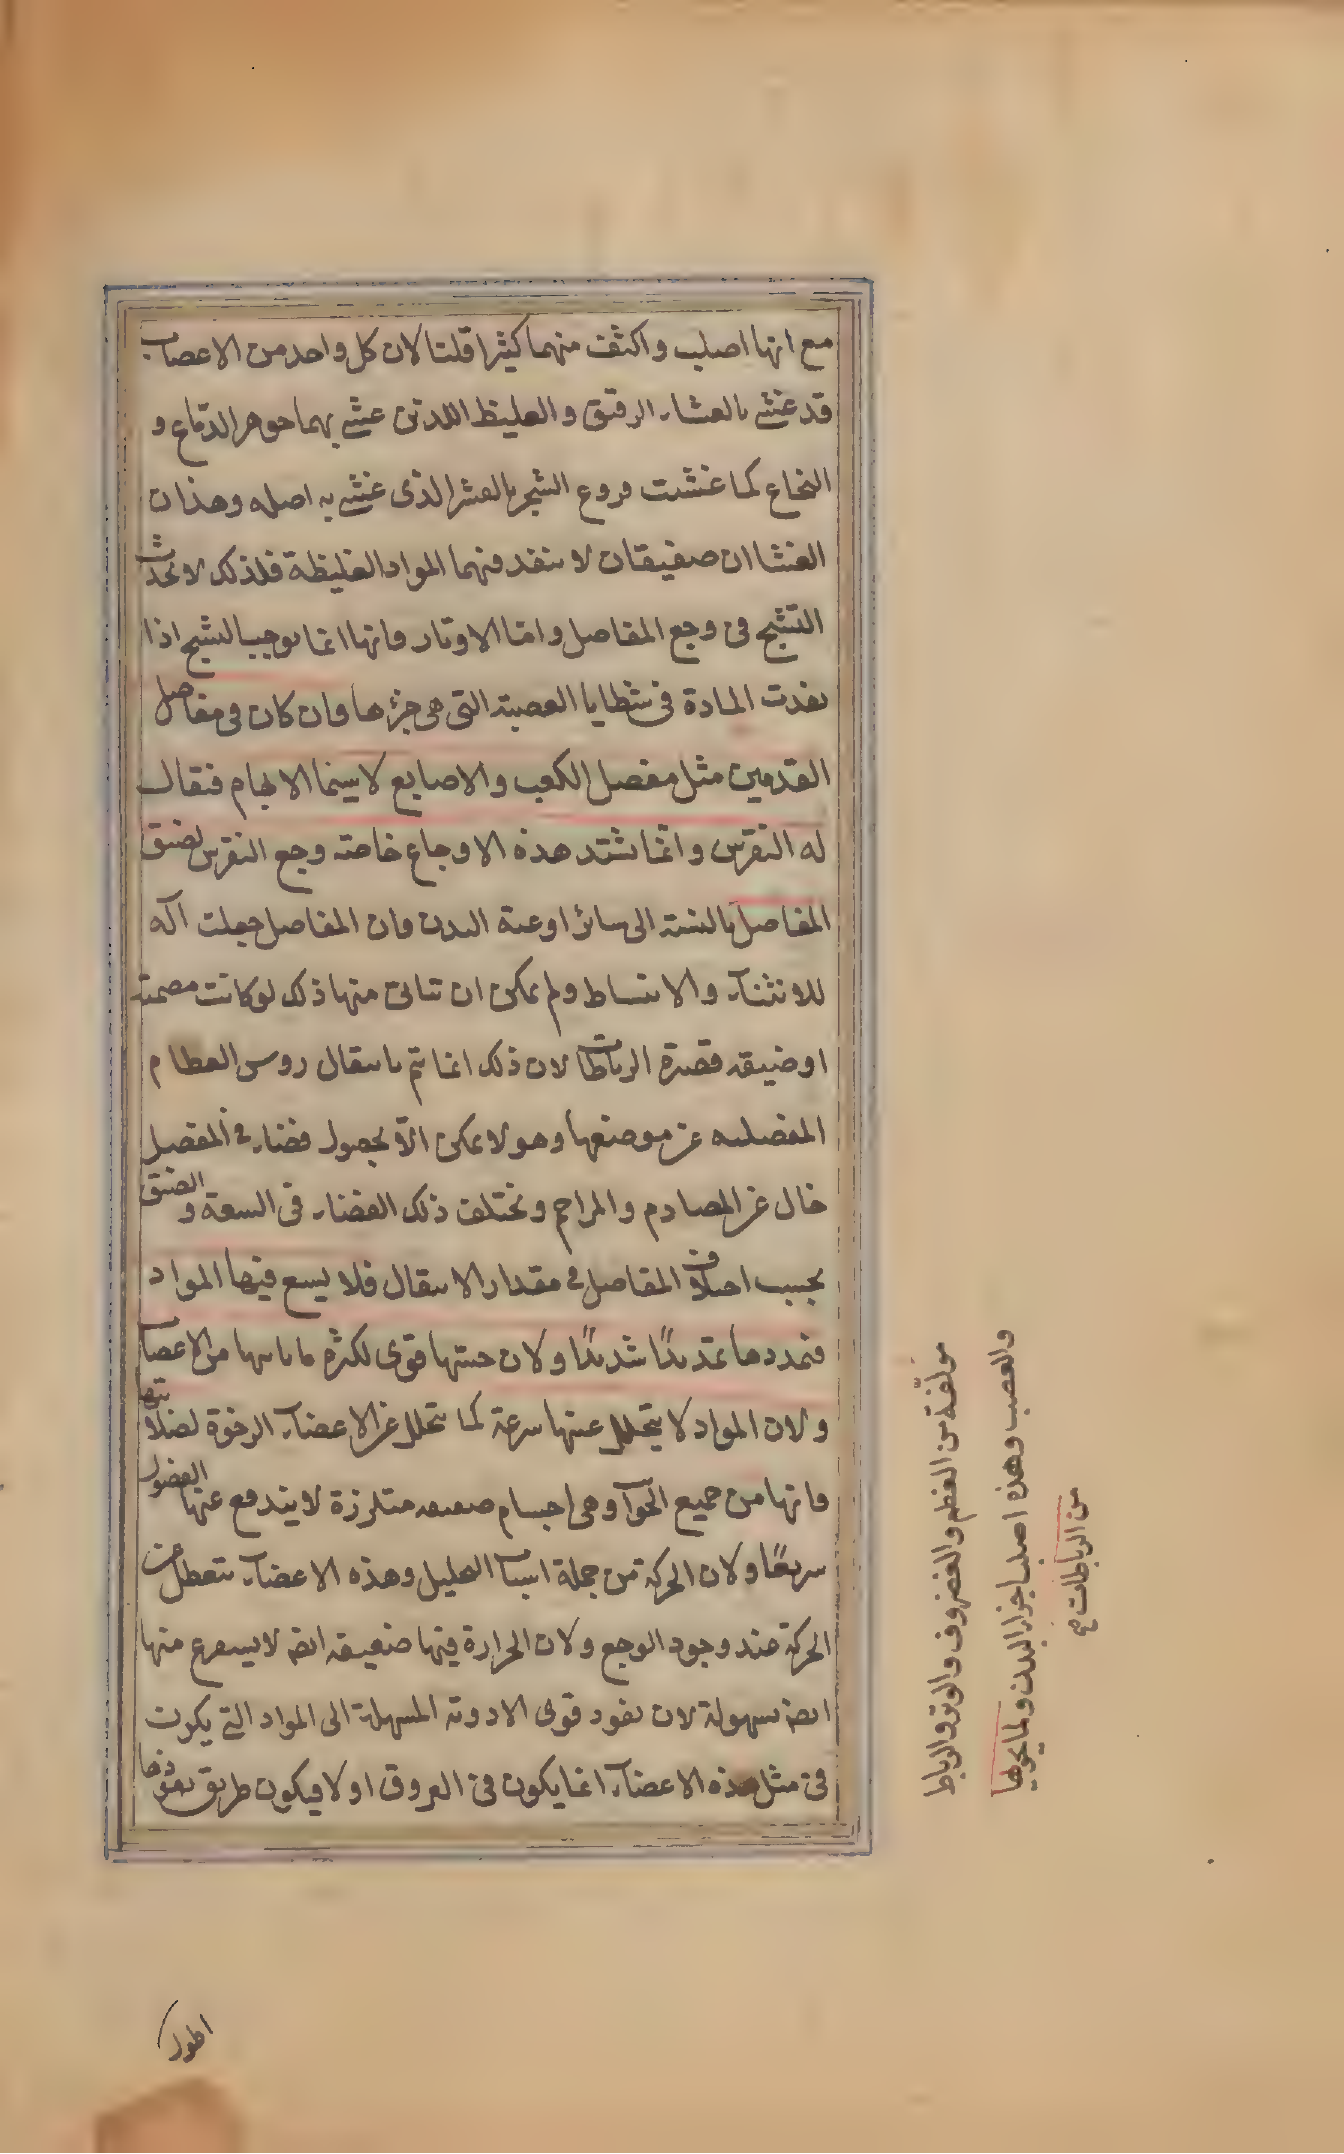 مع انها اصلب واكثف منهما كثيرا قلنا لان كل واحد من الاعصاب
قد غشى بالغشاء الرقيق والغليظ اللذين غشى بهما جوهر الدماغ و
النخاع كما غشيت فروع الشجر بالقشر الذى غشى به اصله وهذان
الغشاان صفيقان لا ينفذ فيهما المواد الغليظة فلذلك لا يحدث
التشنج فى وجع المفاصل واما الاوتار فانها انما يوجب التشنج اذا
نفذت المادة فى شظايا العصبية التى هى جزءها وان كان فى مفاصل
القدمين مثل مفصل الكعب والاصابع لا سيما الابهام فيقال
له النقرس وانما يشتد هذه الاوجاع خاصة وجع النقرس لضيق
المفاصل بالنسبة الى سائر اوعية البدن فان المفاصل جعلت آلة
للانثناء والانبساط ولم يمكن ان يتاتى منها ذلك لو كانت مصمتة
او ضيقة قصيرة الرباطات لان ذلك انما يتم بانتقال روس العظام
المفصلية عن موضعها وهو لا يمكن الا بحصول فضاء فى المفصل
خال عن المصادم والمزاحم ويختلف ذلك الفضاء فى السعة والضيق
بحسب اختلاف المفاصل فى مقدار الانتقال فلا يسع فيها المواد
فتمددها تمديدًا شديدًا ولان حسها قوى لكثرة ما ياتيها من الاعصاب
ولان المواد لا يتحلل عنها سرعة كما يتحلل عن الاعضاء الرخوة لصلابتها
فانها من جميع الجوانب وهى اجسام صلبة متلززة لا يندفع عنها الفضول
سريعًا ولان الحركة من جملة اسباب التحليل وهذه الاعضاء تتعطل عن
الحركة عند وجود الوجع ولان الحرارة فيها ضعيفة ايضا لا يستفرغ منها
ايضا بسهولة لان نفوذ قوى الادوية المسهلة الى المواد التى يكون
فى مثل هذه الاعضاء انما يكون فى العروق اولا فيكون طريق نفوذها
مولفة من العظم والغضروف والوتر والرباط
والعصب وهذه اصلب اجزاء البدن ولما يحويها
من الرباطات صح
اطول